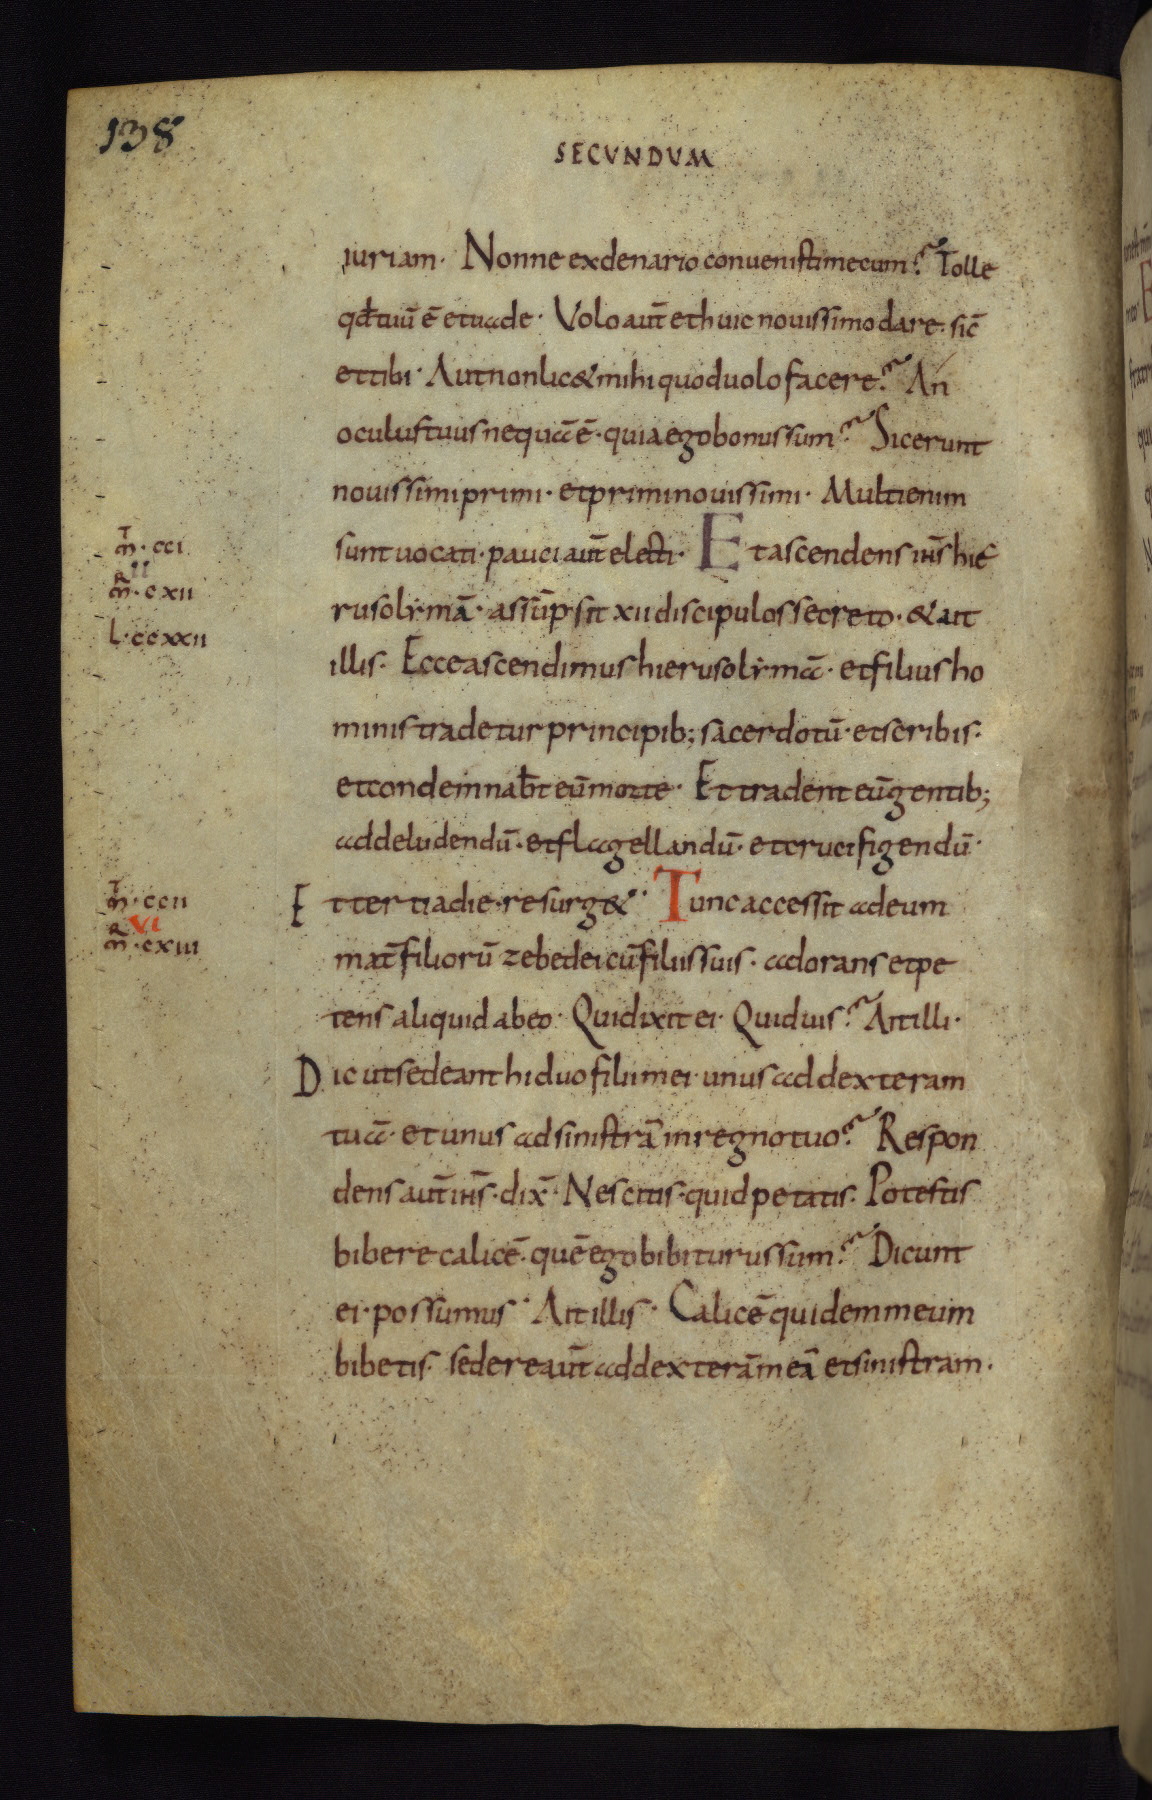 138
SECUNDUM
iuriam· Nonne ex denario convenisti mecum? Tolle
qđ tuū ē et vade· Volo aut̄ et huic novissimo dare· sic̄
et tibi· Aut non lic& mihi quod volo facere? An
oculus tuus nequā ē· quia ego bonus sum? Sic erunt
novissimi primi· et primi novissimi· Multi enim
sunt vocati· pauci aut̄ electi· Et ascendens ih̄s hie
rusolymā· assūpsit xii discipulos secreto· & ait
illis· Ecce ascendimus hierusolymā· et filius ho
minis tradetur principib; sacerdotū· et scribis·
et condemnab̄t eū morte· Et tradent eū gentib;
ad deludendū· et flagellandū· et crucifigendū·
Et tertia die· resurg&· Tunc accessit ad eum
mat̄ filiorū zebedei cū filiis suis· adorans et pe
tens aliquid ab eo· Qui dixit ei· Quid vis? Ait illi·
Dic ut sedeant hi duo filii mei· unus ad dexteram
tuā· et unus ad sinistrā in regno tuo? Respon
dens aut̄ ih̄s· dix̄· Nescitis· quid petatis· Potestis
bibere calicē· quē ego bibiturus sum? Dicunt
ei· possumus· Ait illis· Calicē quidem meum
bibetis· sedere aut̄ ad dexterā meā et sinistram·
m̄· cci
ii
m̄· cxii
L· ccxxii
m̄· ccii
vi
m̄· cxiii